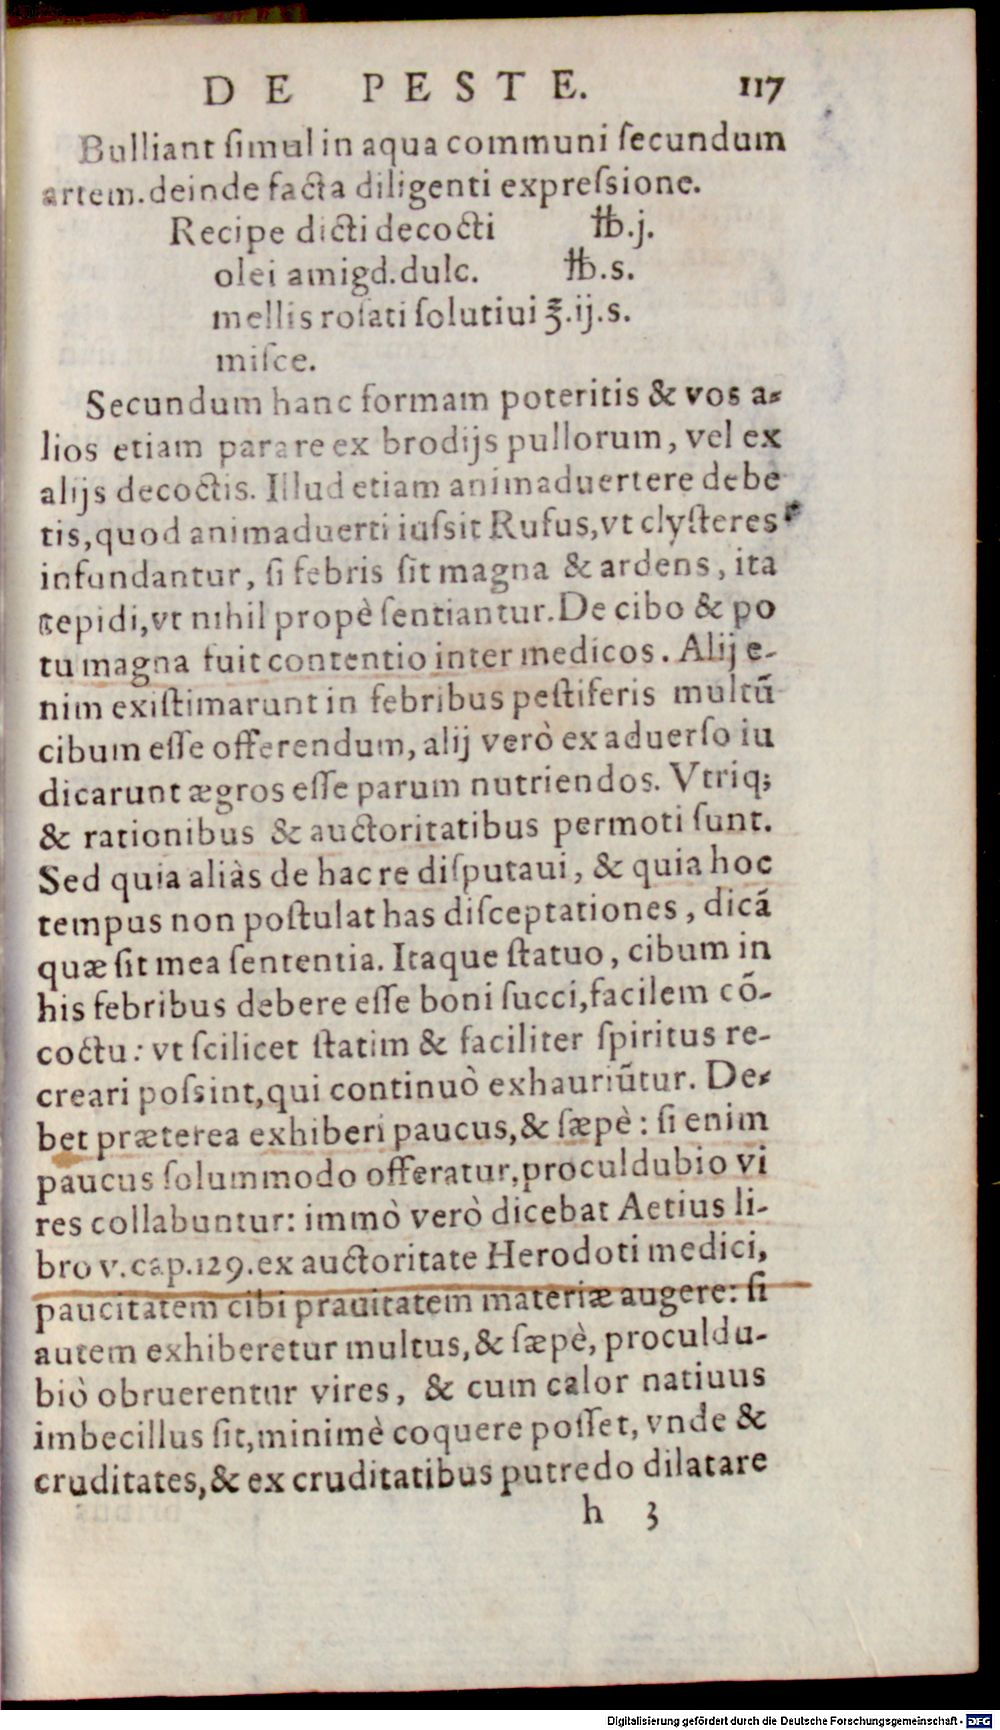 DE PESTE. 117
Bulliant ſimul in aqua communi ſecundum
artem. deinde facta diligenti expreſsione.
Recipe dicti decocti ℔.j.
olei amigd. dulc. ℔.s.
mellis roſati ſolutiui ℥.ij.s.
miſce.
Secundum hanc formam poteritis & vos a-
lios etiam parare ex brodijs pullorum, vel ex
alijs decoctis. Illud etiam animaduertere debe
tis, quod animaduerti iuſsit Rufus, vt clyſteres
infundantur, ſi febris ſit magna & ardens, ita
tepidi, vt nihil propè ſentiantur. De cibo & po
tu magna fuit contentio inter medicos. Alij e-
nim exiſtimarunt in febribus peſtiferis multũ
cibum eſſe offerendum, alij verò ex aduerſo iu
dicarunt ægros eſſe parum nutriendos. Vtriq;
& rationibus & auctoritatibus permoti ſunt.
Sed quia aliàs de hac re diſputaui, & quia hoc
tempus non poſtulat has diſceptationes, dicã
quæ ſit mea ſententia. Itaque ſtatuo, cibum in
his febribus debere eſſe boni ſucci, facilem cõ-
coctu: vt ſcilicet ſtatim & faciliter ſpiritus re-
creari poſsint, qui continuò exhauriũtur. De-
bet præterea exhiberi paucus, & ſæpè: ſi enim
paucus ſolummodo offeratur, proculdubio vi
res collabuntur: immò verò dicebat Aetius li-
bro v. cap. 129. ex auctoritate Herodoti medici,
paucitatem cibi prauitatem materiæ augere: ſi
autem exhiberetur multus, & ſæpè, proculdu-
biò obruerentur vires, & cum calor natiuus
imbecillus ſit, minimè coquere poſſet, vnde &
cruditates, & ex cruditatibus putredo dilatare
h 3
Digitalisierung gefördert durch die Deutsche Forschungsgemeinschaft - DFG